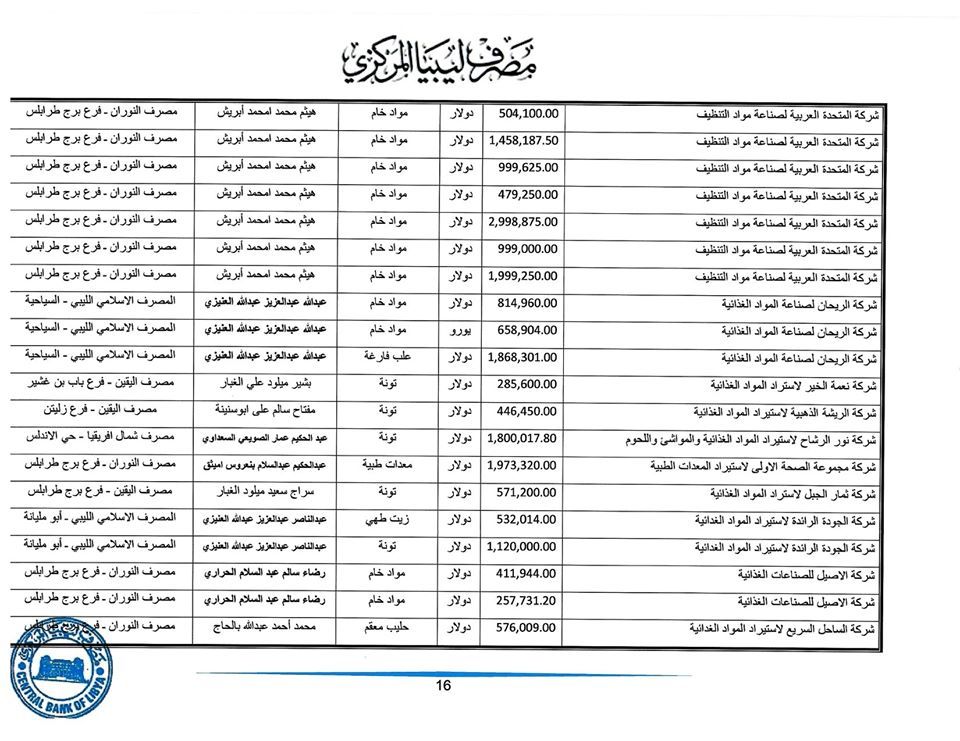 مصرف ليبيا المركزي
شركة المتحدة العربية لصناعة مواد التنظيف 504,100.00 دولار مواد خام هيثم محمد امحمد أبريش مصرف النوران - فرع برج طرابلس
شركة المتحدة العربية لصناعة مواد التنظيف 1,458,187.50 دولار مواد خام هيثم محمد امحمد أبريش مصرف النوران - فرع برج طرابلس
شركة المتحدة العربية لصناعة مواد التنظيف 999,625.00 دولار مواد خام هيثم محمد امحمد أبريش مصرف النوران - فرع برج طرابلس
شركة المتحدة العربية لصناعة مواد التنظيف 479,250.00 دولار مواد خام هيثم محمد امحمد أبريش مصرف النوران - فرع برج طرابلس
شركة المتحدة العربية لصناعة مواد التنظيف 2,998,875.00 دولار مواد خام هيثم محمد امحمد أبريش مصرف النوران - فرع برج طرابلس
شركة المتحدة العربية لصناعة مواد التنظيف 999,000.00 دولار مواد خام هيثم محمد امحمد أبريش مصرف النوران - فرع برج طرابلس
شركة المتحدة العربية لصناعة مواد التنظيف 1,999,250.00 دولار مواد خام هيثم محمد امحمد أبريش مصرف النوران - فرع برج طرابلس
شركة الريحان لصناعة المواد الغذائية 814,960.00 دولار مواد خام عبدالله عبدالعزيز عبدالله العنيزي المصرف الاسلامي الليبي - السياحية
شركة الريحان لصناعة المواد الغذائية 658,904.00 يورو مواد خام عبدالله عبدالعزيز عبدالله العنيزي المصرف الاسلامي الليبي - السياحية
شركة الريحان لصناعة المواد الغذائية 1,868,301.00 دولار علب فارغة عبدالله عبدالعزيز عبدالله العنيزي المصرف الاسلامي الليبي - السياحية
شركة نعمة الخير لاستراد المواد الغذائية 285,600.00 دولار تونة بشير ميلود علي الغبار مصرف اليقين - فرع باب بن غشير
شركة الريشة الذهبية لاستيراد المواد الغذائية 446,450.00 دولار تونة مفتاح سالم على ابوسنينة مصرف اليقين - فرع زليتن
شركة نور الرشاح لاستيراد المواد الغذائية والمواشئ واللحوم 1,800,017.80 دولار تونة عبد الحكيم عمار الصويعي السعداوي مصرف شمال افريقيا - حي الاندلس
شركة مجموعة الصحة الاولى لاستيراد المعدات الطبية 1,973,320.00 دولار معدات طبية عبدالحكيم عبدالسلام بنعروس امينق مصرف النوران - فرع برج طرابلس
شركة ثمار الجبل لاستراد المواد الغذائية 571,200.00 دولار تونة سراج سعيد ميلود الغبار مصرف اليقين - فرع برج طرابلس
شركة الجودة الرائدة لاستيراد المواد الغدائية 532,014.00 دولار زيت طهي عبدالناصر عبدالعزيز عبدالله العنيزي المصرف الاسلامي الليبي - أبو مليانة
شركة الجودة الرائدة لاستيراد المواد الغدائية 1,120,000.00 دولار تونة عبدالناصر عبدالعزيز عبدالله العنيزي المصرف الاسلامي الليبي - أبو مليانة
شركة الاصيل للصناعات الغذائية 411,944.00 دولار مواد خام رضاء سالم عبد السلام الحراري مصرف النوران - فرع برج طرابلس
شركة الاصيل للصناعات الغذائية 257,731.20 دولار مواد خام رضاء سالم عبد السلام الحراري مصرف النوران - فرع برج طرابلس
شركة الساحل السريع لاستيراد المواد الغدائية 576,009.00 دولار حليب معقم محمد أحمد عبدالله بالحاج مصرف النوران - فرع برج طرابلس
مصرف ليبيا المركزي
CENTRAL BANK OF LIBYA
16